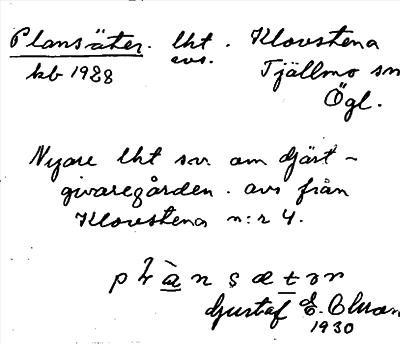 Plansäter. lht. Klovstena
kb 1928 avs. Tjällmo sn
Ögl.
Nyare lht sv om djäst-
givaregården. avs från
Klovstena n:r 4.
Gustaf E.
1930